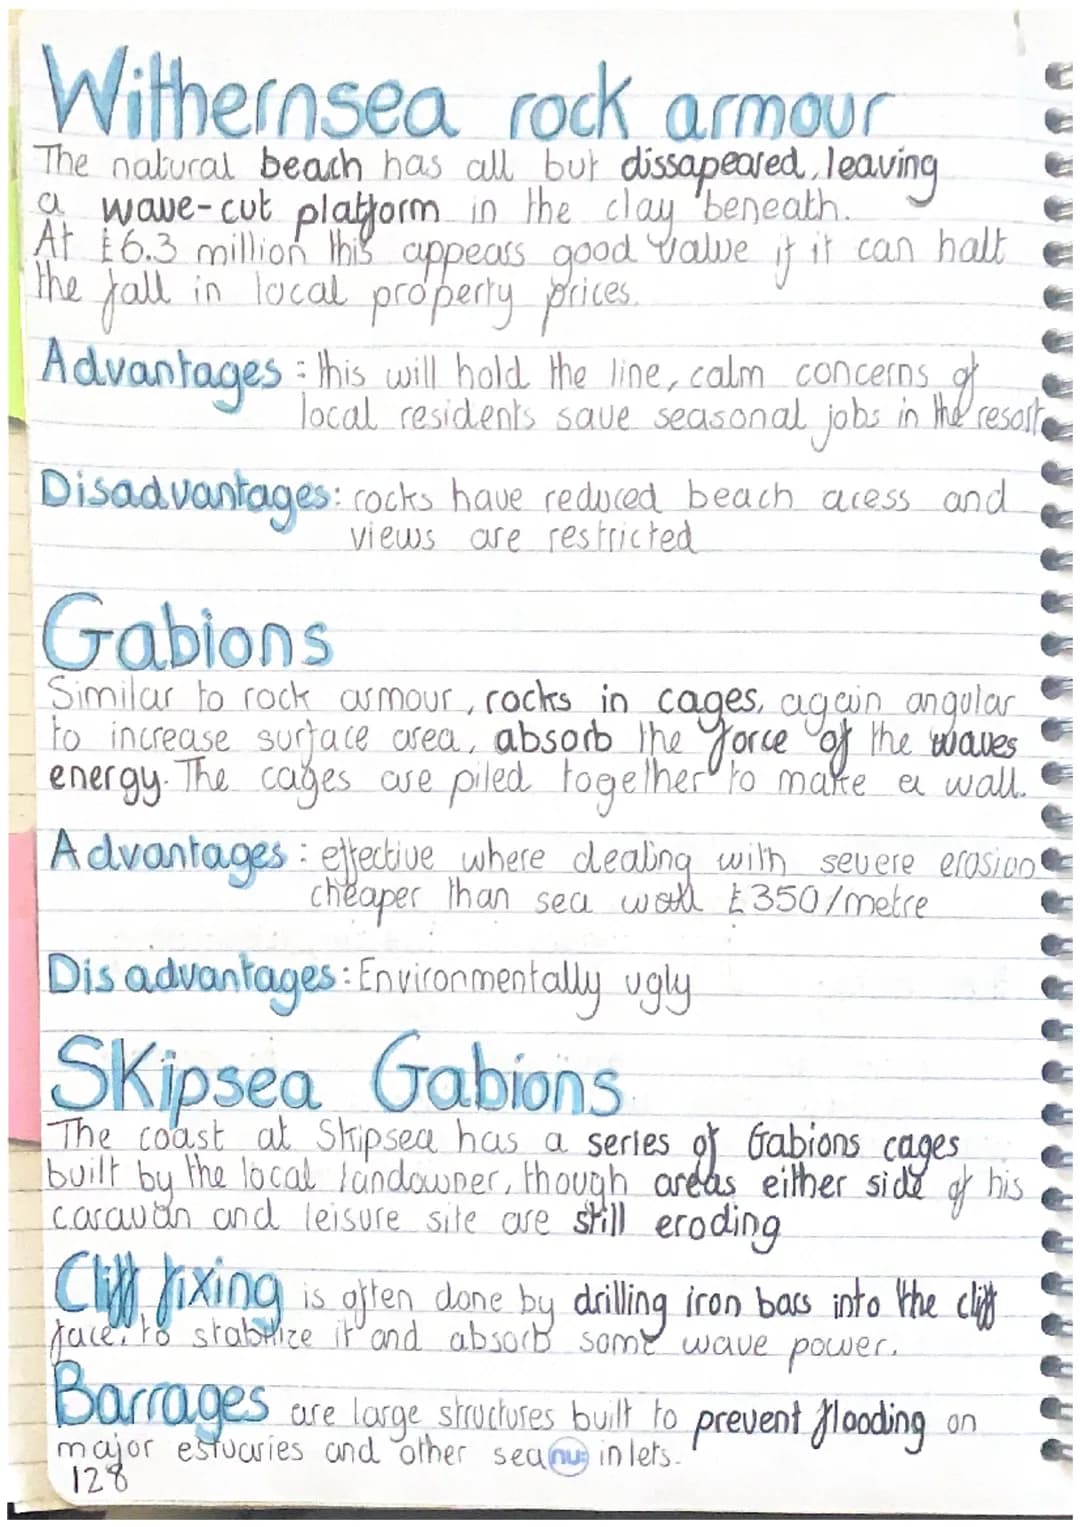 Withernsea rock armour
The natural beach has all but dissapeared, leaving
a wave-cut platform in the clay beneath.
At £6.3 million this appears good value if it can halt
the fall in local property prices.
Advantages: this will hold the line, calm concerns of
local residents save seasonal jobs in the resort
Disadvantages: rocks have reduced beach acess and
views are restricted
Gabions
Similar to rock armour, rocks in cages, again angular
to increase surface area, absorb the force of the waves
energy. The cages are piled together to make a wall.
Advantages: effective where dealing with severe erosion
cheaper than sea wall £350/metre
Disadvantages: Environmentally ugly
Skipsea Gabions
The coast at Skipsea has a series of Gabions cages
built by the local landowner, though areas either side of his
caravan and leisure site are still eroding
Cliff fixing is often done by drilling iron bars into the cliff
face, to stabilize it and absorb some wave power.
Barrages are large structures built to prevent flooding on
major estuaries and other sea nu: inlets.
128